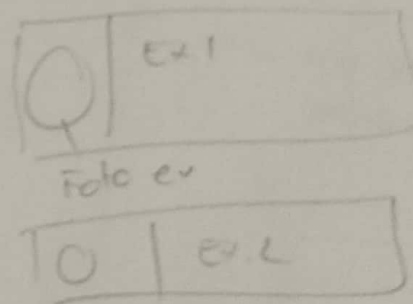 Ev 1
Foto ev
Ev. 2